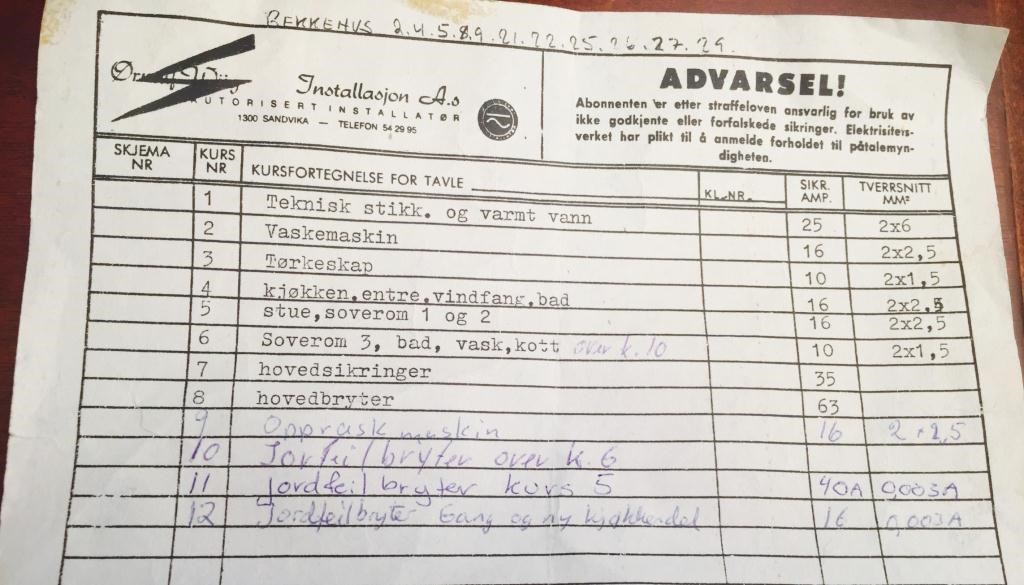 BEKKEHUS 2.4.5.8.9.21.22.25.26.27.29.
Installasjon A.s
AUTORISERT INSTALLATØR
1300 SANDVIKA — TELEFON 54 29 95
ADVARSEL!
Abonnenten er etter straffeloven ansvarlig for bruk av
ikke godkjente eller forfalskede sikringer. Elektrisitets-
verket har plikt til å anmelde forholdet til påtalemyn-
digheten.
SKJEMA NR KURS NR KURSFORTEGNELSE FOR TAVLE KL.NR. SIKR. AMP. TVERRSNITT MM²
1 Teknisk stikk. og varmt vann 25 2x6
2 Vaskemaskin 16 2x2,5
3 Tørkeskap 10 2x1,5
4 kjøkken,entre,vindfang,bad 16 2x2,5
5 stue,soverom 1 og 2 16 2x2,5
6 Soverom 3, bad, vask,kott over k.10 10 2x1,5
7 hovedsikringer 35
8 hovedbryter 63
9 Oppvask maskin 16 2x2,5
10 Jorfeilbryter over k.6
11 Jordfeilbryter kurs 5 40A 0,003A
12 Jordfeilbryter Gang og ny kjøkkendel 16 0,003A